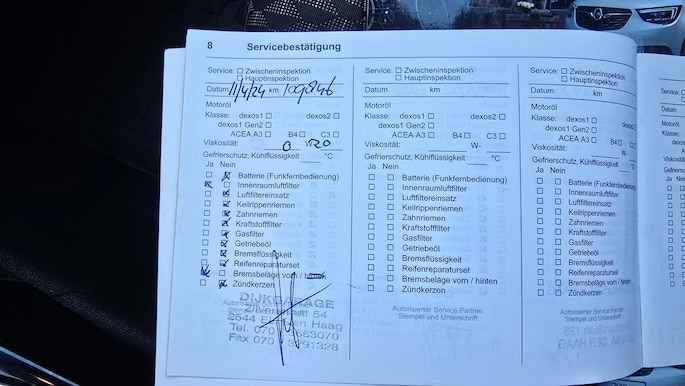 8 Servicebestätigung
Service: ☐ Zwischeninspektion
☐ Hauptinspektion
Datum 11/4/24 km 109846
Motoröl
Klasse: dexos1 ☐ dexos2 ☐
dexos1 Gen2 ☐
ACEA A3 ☐ B4 ☐ C3 ☐
Viskosität: 0 W- 20
Gefrierschutz, Kühlflüssigkeit °C
Ja Nein
Batterie (Funkfernbedienung)
Innenraumluftfilter
Luftfiltereinsatz
Keilrippenriemen
Zahnriemen
Kraftstofffilter
Gasfilter
Getriebeöl
Bremsflüssigkeit
Reifenreparaturset
Bremsbeläge vorn / hinten
Zündkerzen
DIJKGARAGE
54
2544 Den Haag
Tel. 070
Fax 070
Service: ☐ Zwischeninspektion
☐ Hauptinspektion
Datum km
Motoröl
Klasse: dexos1 ☐ dexos2 ☐
dexos1 Gen2 ☐
ACEA A3 ☐ B4 ☐ C3 ☐
Viskosität: W-
Gefrierschutz, Kühlflüssigkeit °C
Ja Nein
☐ ☐ Batterie (Funkfernbedienung)
☐ ☐ Innenraumluftfilter
☐ ☐ Luftfiltereinsatz
☐ ☐ Keilrippenriemen
☐ ☐ Zahnriemen
☐ ☐ Kraftstofffilter
☐ ☐ Gasfilter
☐ ☐ Getriebeöl
☐ ☐ Bremsflüssigkeit
☐ ☐ Reifenreparaturset
☐ ☐ Bremsbeläge vorn / hinten
☐ ☐ Zündkerzen
Autorisierter Service Partner
Stempel und Unterschrift
Service: ☐ Zwischeninspektion
☐ Hauptinspektion
Datum km
Motoröl
Klasse: dexos1 ☐ dexos2
dexos1 Gen2 ☐
ACEA A3 ☐ B4 ☐ C3 ☐
Viskosität: W-
Gefrierschutz, Kühlflüssigkeit °C
Ja Nein
☐ ☐ Batterie (Funkfernbedienung)
☐ ☐ Innenraumluftfilter
☐ ☐ Luftfiltereinsatz
☐ ☐ Keilrippenriemen
☐ ☐ Zahnriemen
☐ ☐ Kraftstofffilter
☐ ☐ Gasfilter
☐ ☐ Getriebeöl
☐ ☐ Bremsflüssigkeit
☐ ☐ Reifenreparaturset
☐ ☐ Bremsbeläge vorn / hinten
☐ ☐ Zündkerzen
Autorisierter Service Partner
Stempel und Unterschrift
Service:
Datum
Motoröl
Klasse:
Ja